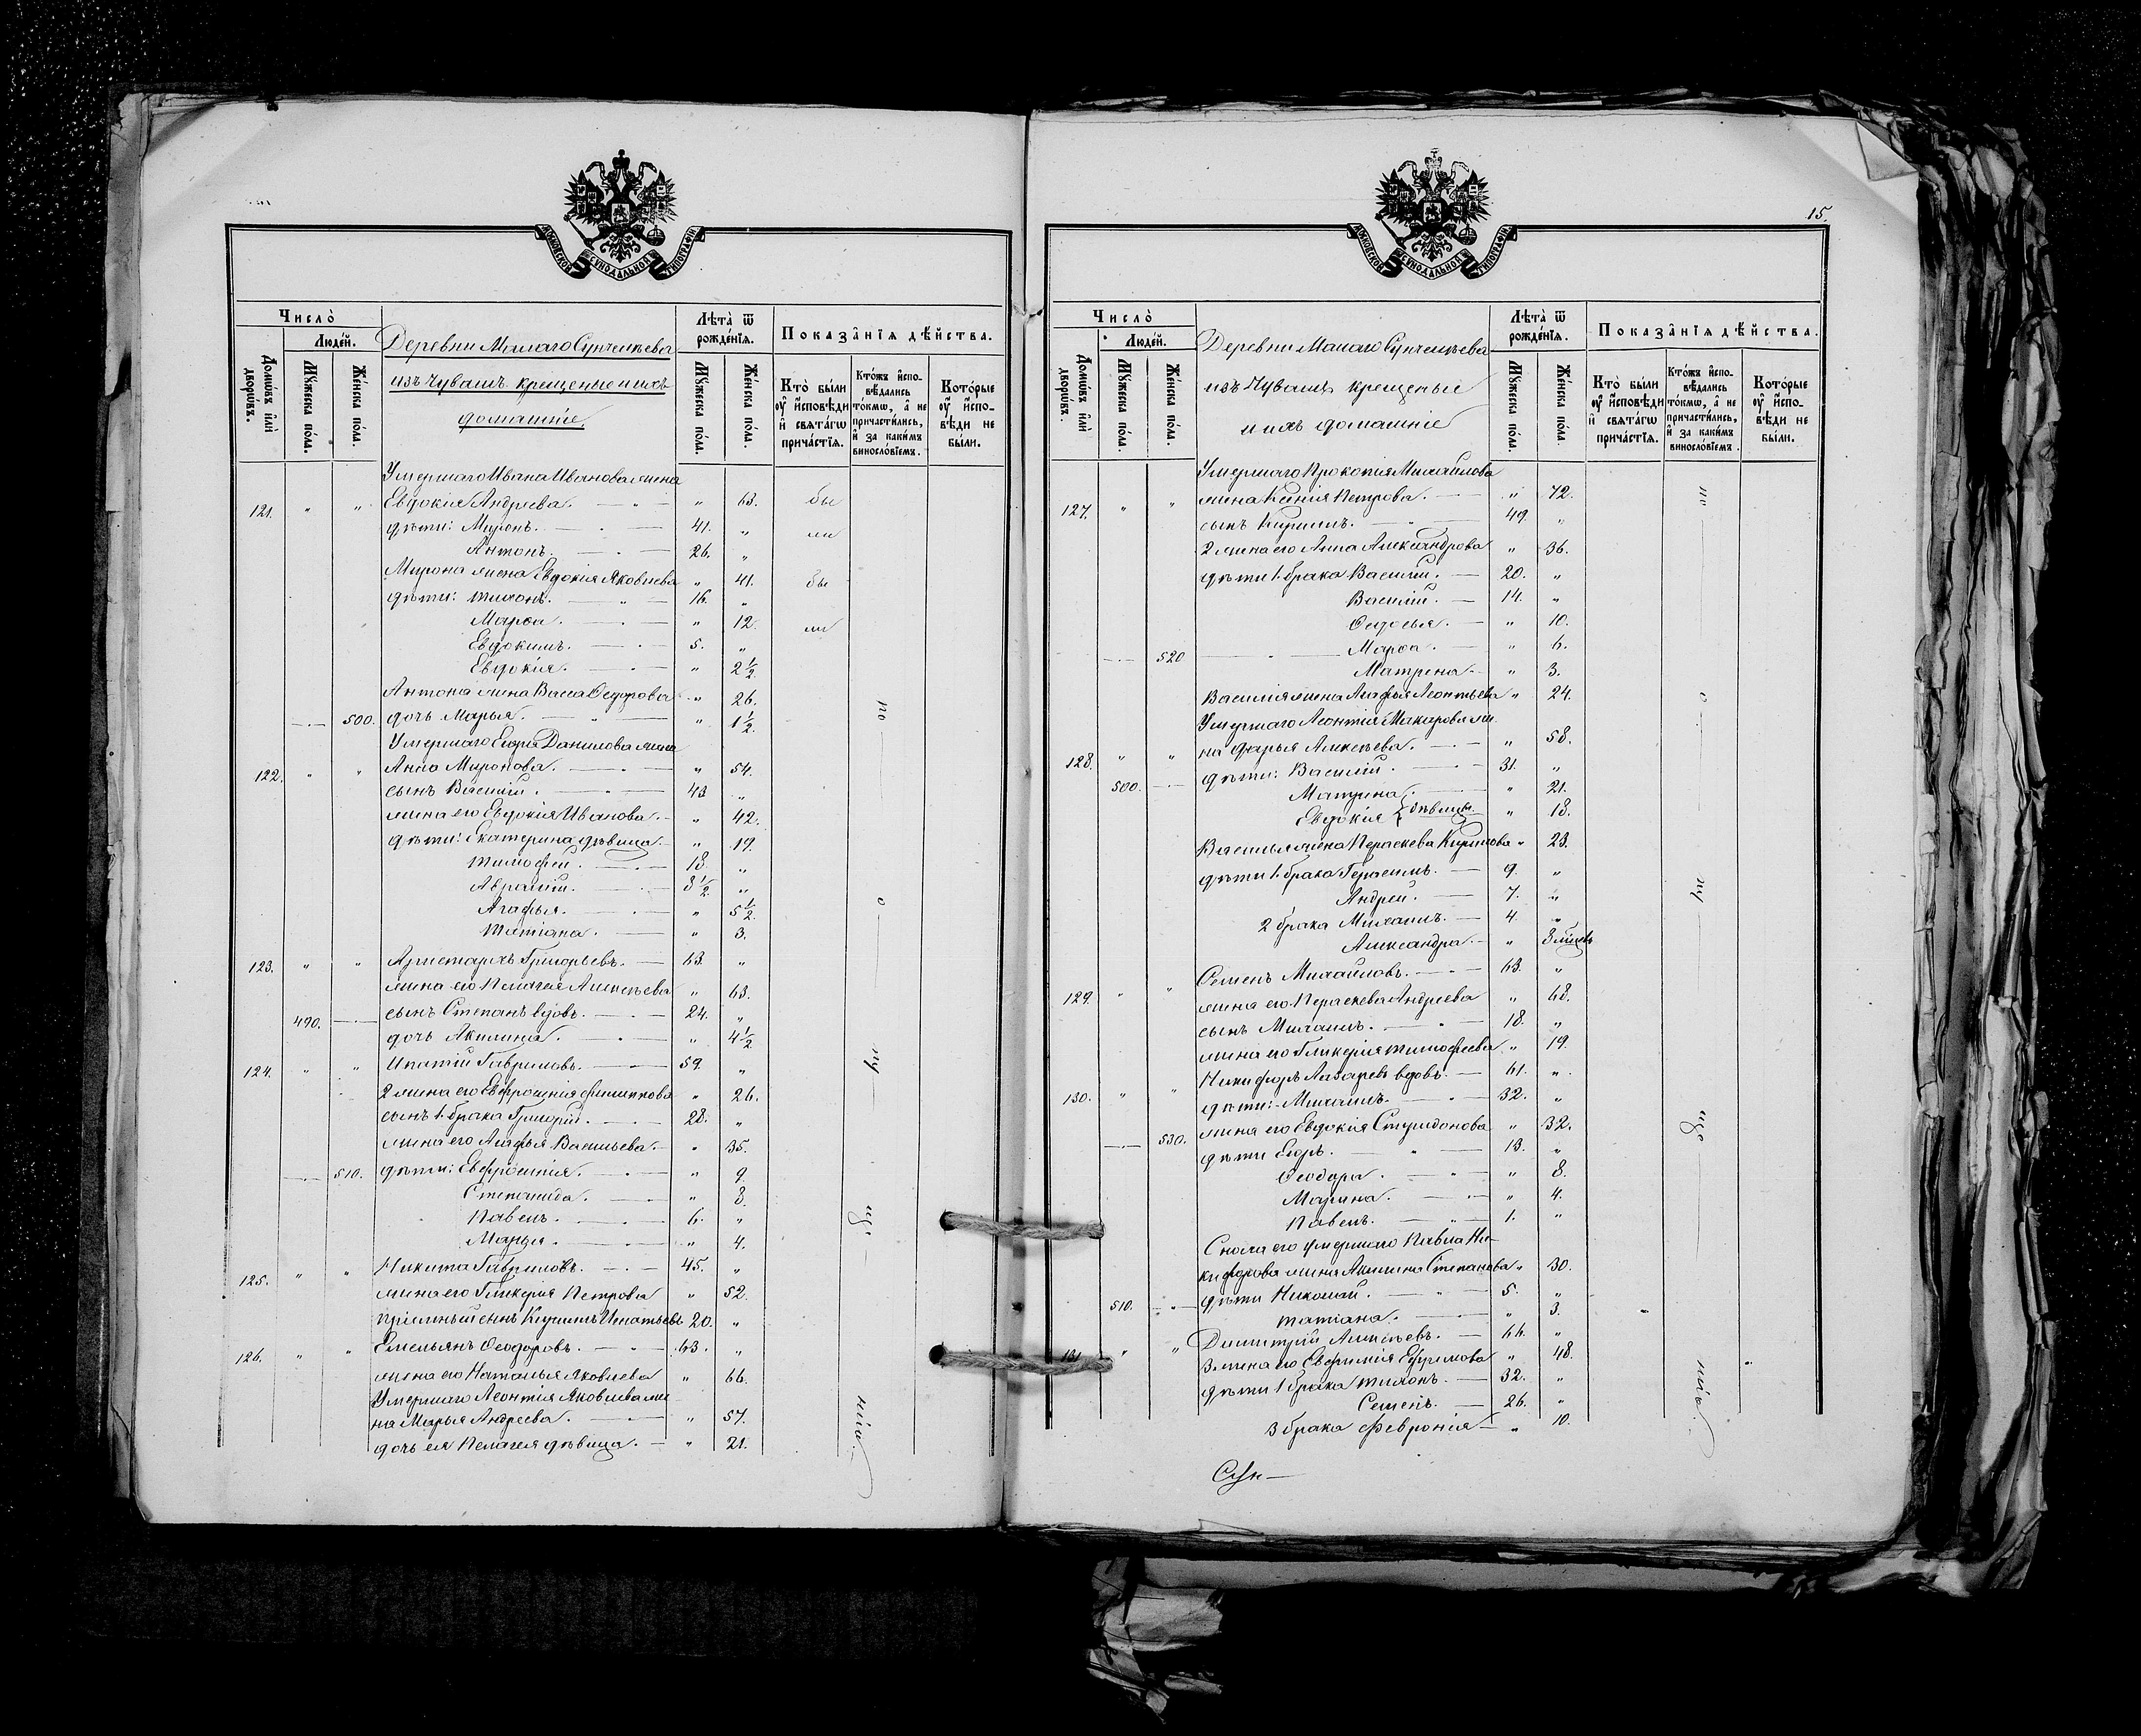 МОСКОВСКОЙ СѴНОДАЛЬНОЙ ТИПОГРАФІИ
Число̀
Люде́й.
Домѡ́въ и҆лѝ дворѡ́въ.
Мꙋ́жеска по́ла.
Же́нска по́ла.
Деревни Малаго Сунчелѣева
изъ Чувашъ крещеные и ихъ
домашніе.
Лѣта̀ ѿ рожде́нїѧ.
Мꙋ́жеска по́ла.
Же́нска по́ла.
Показа̂нїѧ дѣ́йства.
Кто̀ бы́ли оу҆ и҆́сповѣди и҆ свѧта́гѡ прича́стїѧ.
Кто́жъ и҆спо-вѣ́дались то́кмѡ, а҆ не причасти́лись, и҆ за каки́мъ винослѡ́вїемъ.
Кото́рые оу҆ и҆́спо-вѣди не бы́ли.
Умершаго Ивана Иванова жена
121. " " Евдокія Андреева. " 63. бы
дѣти: Миронъ. 41. " ли
Антонъ. 26. "
Мирона жена Евдокія Яковлева " 41. бы
дѣти: Тихонъ. 16. "
Марѳа. " 12. ли
Евдокимъ. 5. "
Евдокія. " 2 1/2.
Антона жена Васса Ѳедорова " 26. по
500. дочь Марья. " 1 1/2.
Умершаго Егора Данилова жена
122. " " Анна Миронова. " 54.
сынъ Василій. 43 "
жена его Евдокія Иванова. " 42.
дѣти: Екатерина дѣвица. " 19.
Тимофей. 13. "
Аврамій. 8 1/2 "
Агафья. " 5 1/2. о
Татіана. " 3.
123. " " Аристархъ Григорьевъ. 63. "
жена его Пелагея Алексѣева " 63.
490. сынъ Степанъ вдовъ. 24. "
дочь Акилина. " 4 1/2
124. " " Ипатій Гавриловъ. 59. " му
2 жена его Евфросинія Филиппова " 26.
сынъ 1. брака Григорій. 28. "
жена его Агафья Васильева. " 35.
510. дѣти: Евфросинія. " 9.
Степанида. " 8.
Павелъ. 6. " що
Марья. " 4.
125. " " Никита Гавриловъ. 45. "
жена его Гликерія Петрова " 52.
пріемный сынъ Кирилъ Игнатьевъ 20. "
126. " " Емельянъ Ѳеодоровъ. 63. "
жена его Наталья Яковлева " 66.
Умершаго Леонтія Яковлева же
на Марья Андреева. " 57. нію.
дочь ея Пелагея дѣвица. " 21.
15.
МОСКОВСКОЙ СѴНОДАЛЬНОЙ ТИПОГРАФІИ
Число̀
Люде́й.
Домѡ́въ и҆лѝ дворѡ́въ.
Мꙋ́жеска по́ла.
Же́нска по́ла.
Деревни Малаго Сунчелѣева
изъ Чувашъ крещеные
и ихъ домашніе
Лѣта̀ ѿ рожде́нїѧ.
Мꙋ́жеска по́ла.
Же́нска по́ла.
Показа̂нїѧ дѣ́йства.
Кто̀ бы́ли оу҆ и҆́сповѣди и҆ свѧта́гѡ прича́стїѧ.
Кто́жъ и҆спо-вѣ́дались то́кмѡ, а҆ не причасти́лись, и҆ за каки́мъ винослѡ́вїемъ.
Кото́рые оу҆ и҆́спо-вѣди не бы́ли.
Умершаго Прокопія Михайлова
127. " " жена Ксенія Петрова. " 72.
сынъ Кирилъ. 49. "
2 жена его Анна Александрова " 36.
дѣти 1. брака Василій. 20. "
Василій. 14. "
Ѳедосья. " 10.
520 Марѳа. " 6.
Матрена " 3.
Василія жена Агафья Леонтьева " 24. о
Умершаго Леонтія Макарова же
128. " " на Дарья Алексѣева. " 58.
500. дѣти: Василій. 31. "
Матрина " 21.
Евдокія } дѣвицы " 18.
Василья жена Параскева Кирилова " 23.
дѣти 1. брака Герасимъ. 9. "
Андрей. 7. " му
2 брака Михаилъ. 4. "
Александра. " 8 мѣсяц.
Семенъ Михайловъ. 63. "
129. " " жена его Параскева Андреева " 63.
сынъ Михаилъ. 18. "
жена его Гликерія Тимофеева. " 19.
Никифоръ Лазаревъ вдовъ. 61. "
130. " " дѣти: Михаилъ. 32. "
530. жена его Евдокія Спиридонова " 32. що
дѣти Егоръ. 13. "
Ѳеодора. " 8.
Марина. " 4.
Павелъ. 1. "
Сноха его умершаго Павла Ни-
кифорова жена Акилина Степанова " 30.
510. дѣти Николай. 5. "
Татіана. " 3.
131 " " Димитрій Алексѣевъ. 66. "
3 жена его Евфимія Ефремова " 48.
дѣти 1 брака Тихонъ. 32. " нію.
Семенъ. 26. "
3 брака Февронія " 10.